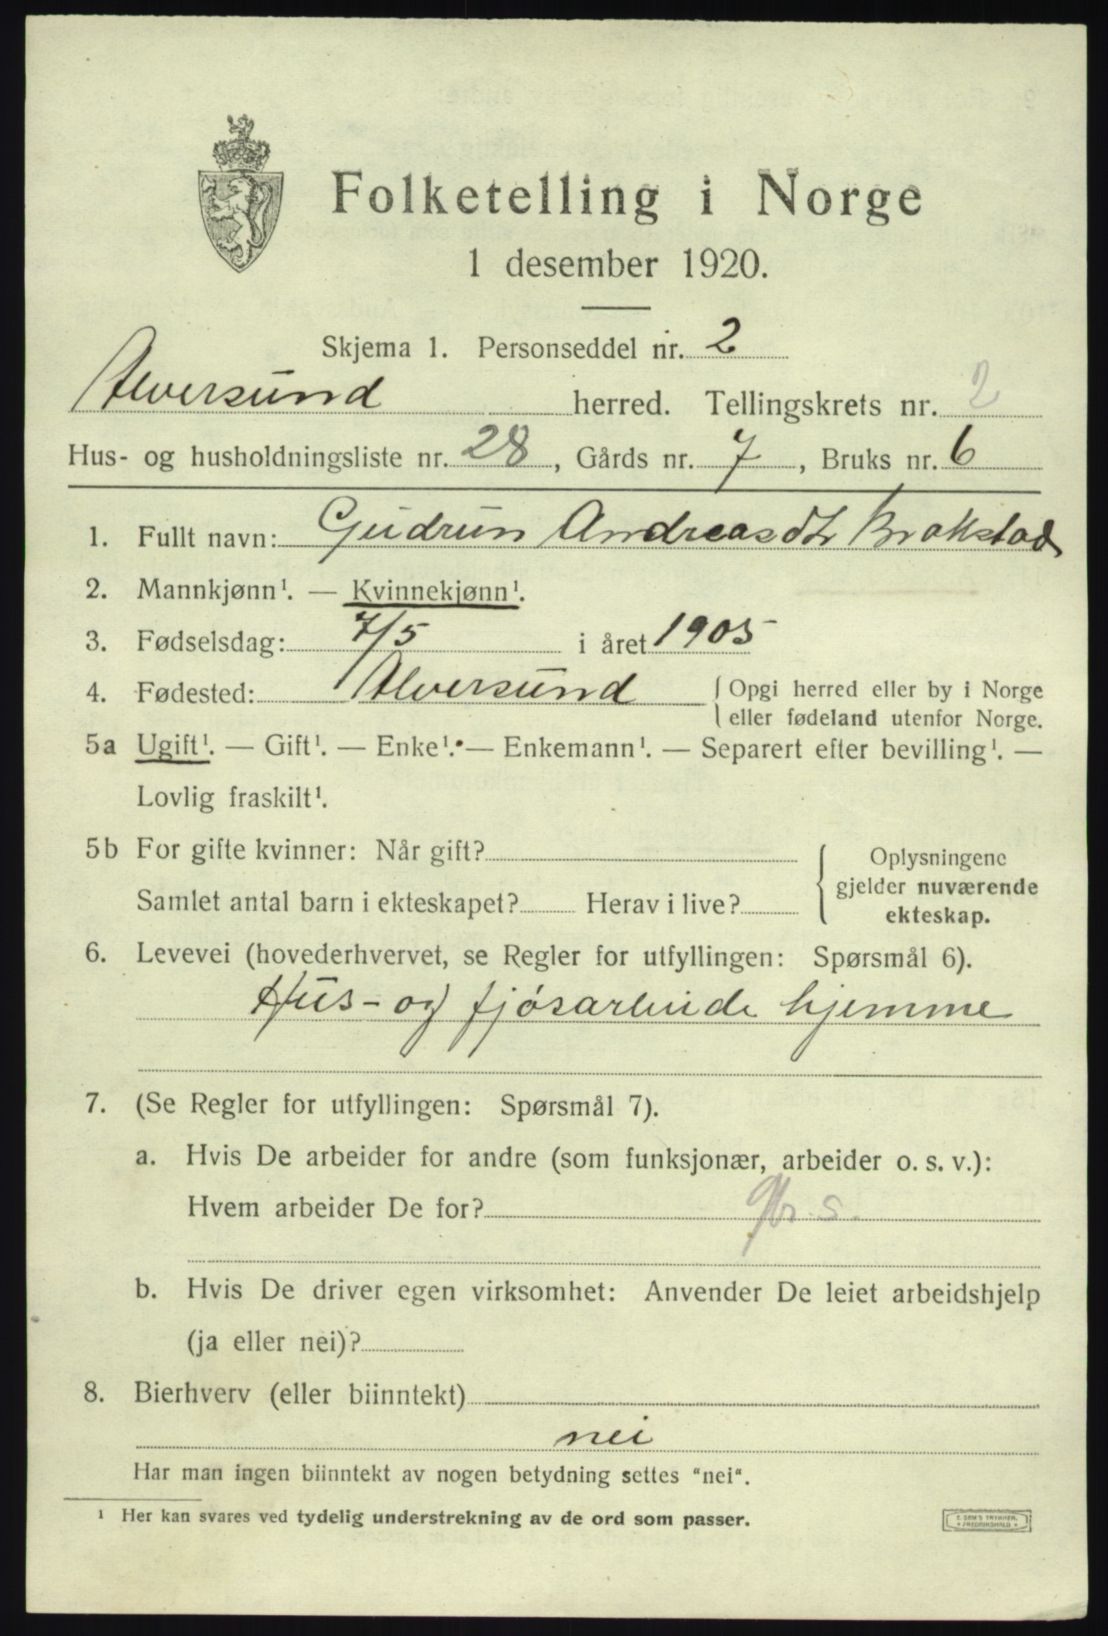 Folketelling i Norge
1 desember 1920.
Skjema 1. Personseddel nr. 2
Alversund herred. Tellingskrets nr. 2
Hus- og husholdningsliste nr. 28, Gårds nr. 7, Bruks nr. 6
1. Fullt navn: Gudrun Andreasdtr Brakstad
2. Mannkjønn¹. — Kvinnekjønn¹.
3. Fødselsdag: 7/5 i året 1905
4. Fødested: Alversund { Opgi herred eller by i Norge
eller fødeland utenfor Norge.
5a Ugift¹. — Gift¹. — Enke¹. — Enkemann¹. — Separert efter bevilling¹. —
Lovlig fraskilt¹.
5b For gifte kvinner: Når gift?
Samlet antal barn i ekteskapet? Herav i live?
Oplysningene
gjelder nuværende
ekteskap.
6. Levevei (hovederhvervet, se Regler for utfyllingen: Spørsmål 6).
Hus- og fjøsarbeide hjemme
7. (Se Regler for utfyllingen: Spørsmål 7).
a. Hvis De arbeider for andre (som funksjonær, arbeider o. s. v.):
Hvem arbeider De for?
b. Hvis De driver egen virksomhet: Anvender De leiet arbeidshjelp
(ja eller nei)?
8. Bierhverv (eller biinntekt)
nei
Har man ingen biinntekt av nogen betydning settes "nei".
¹ Her kan svares ved tydelig understrekning av de ord som passer.
E. SEM'S TRYKKERI,
FREDRIKSHALD